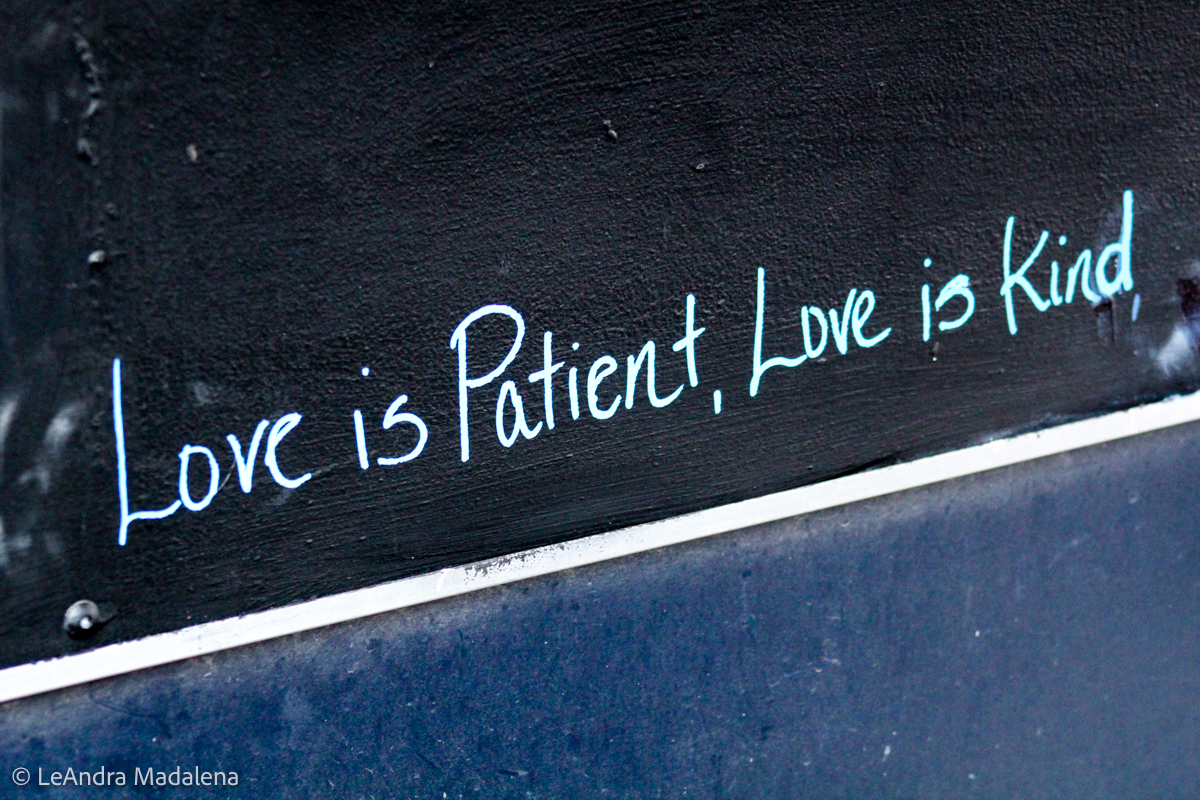 Love is Patient, Love is Kind,
© LeAndra Madalena